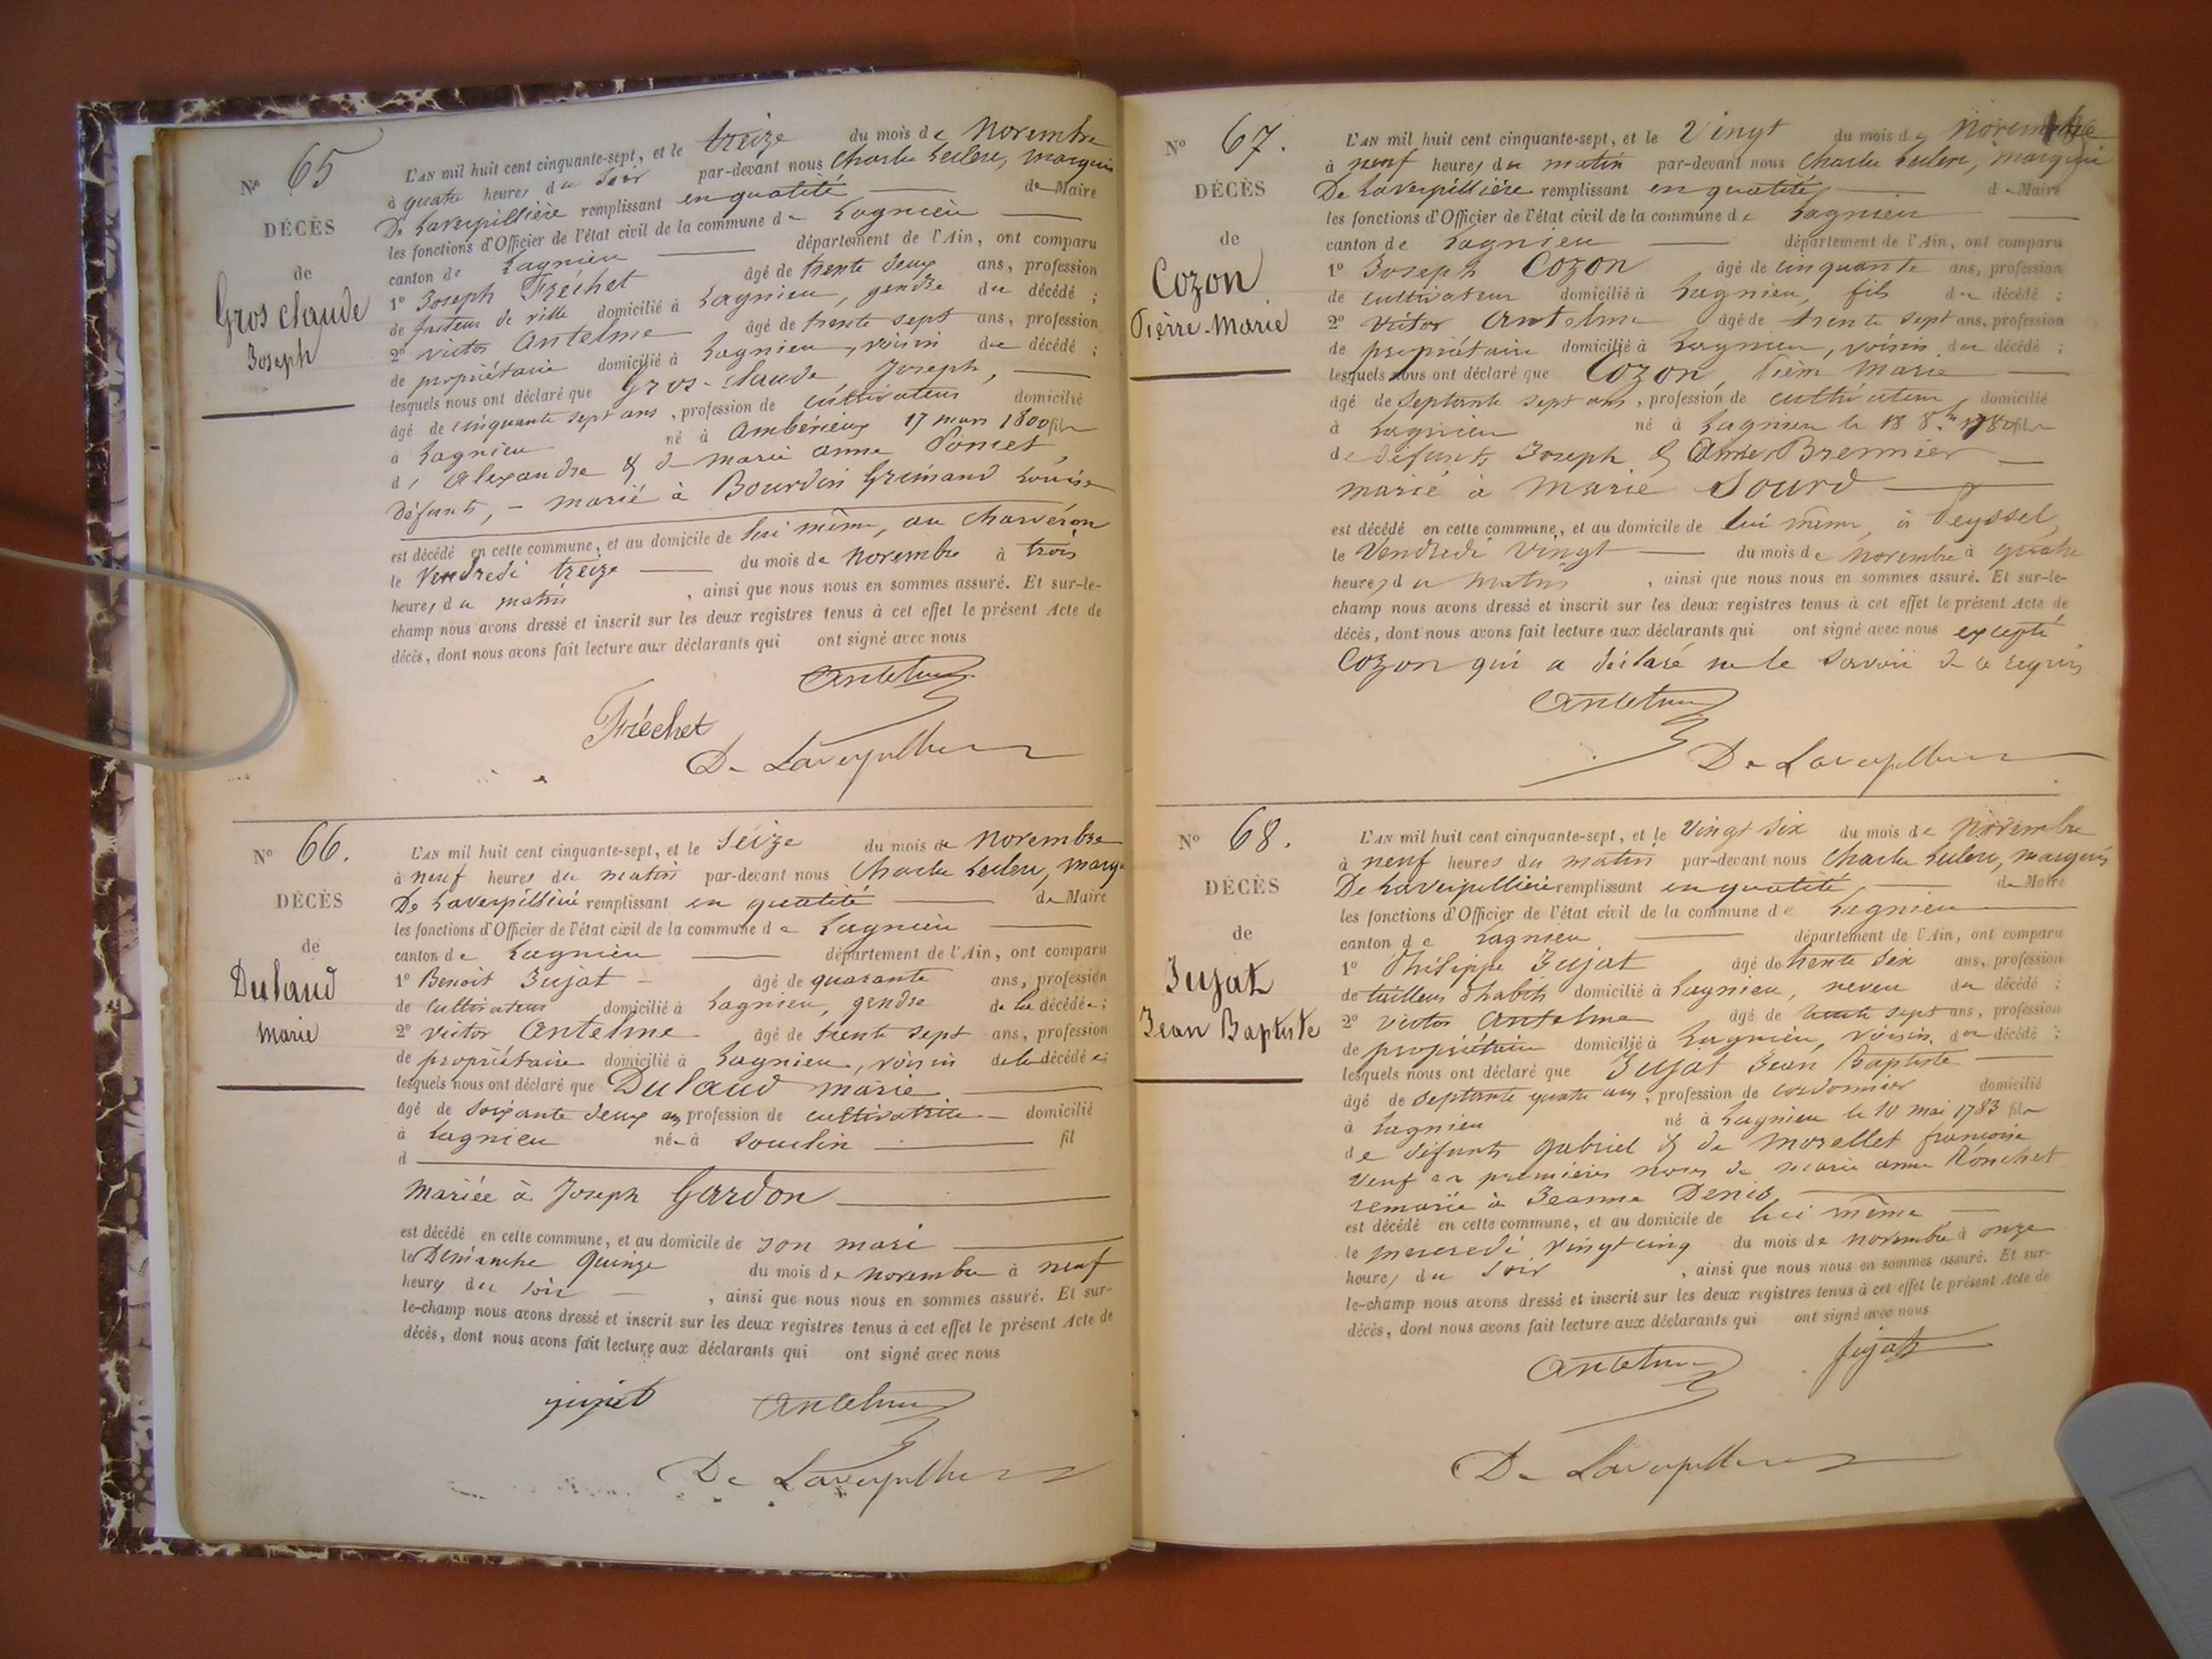 N° 65
DÉCÈS
de
Gros claude
Joseph
L'AN mil huit cent cinquante-sept, et le treize du mois de Novembre
à quatre heures du soir par-devant nous Charles Leclerc, marquis
De Laverpillière remplissant en qualité de Maire
les fonctions d'Officier de l'état civil de la commune de Lagnieu
canton de Lagnieu département de l'Ain, ont comparu
1° Joseph Fréchet âgé de trente deux ans, profession
de facteur de ville domicilié à Lagnieu, gendre du décédé ;
2° victor Antelme âgé de trente sept ans, profession
de propriétaire domicilié à Lagnieu, voisin du décédé ;
lesquels nous ont déclaré que Gros-claude Joseph,
âgé de cinquante sept ans, profession de cultivateur domicilié
à Lagnieu né à Ambérieux 17 mars 1800 fils
d' Alexandre & de marie anne Poncet,
défunts, - marié à Bourdin Grimaud Louise
est décédé en cette commune, et au domicile de lui même, au charvéron
le Vendredi treize du mois de Novembre à trois
heures du matin , ainsi que nous nous en sommes assuré. Et sur-le-
champ nous avons dressé et inscrit sur les deux registres tenus à cet effet le présent Acte de
décès, dont nous avons fait lecture aux déclarants qui ont signé avec nous
Antelme
Fréchet
De Laverpillière
N° 66.
DÉCÈS
de
Dulaud
marie
L'AN mil huit cent cinquante-sept, et le Seize du mois de Novembre
à neuf heures du matin par-devant nous Charles Leclerc, marq.
De Laverpillière remplissant en qualité de Maire
les fonctions d'Officier de l'état civil de la commune de Lagnieu
canton de Lagnieu département de l'Ain, ont comparu
1° Benoit Jujat âgé de quarante ans, profession
de cultivateur domicilié à Lagnieu, gendre de la décédée ;
2° victor Antelme âgé de trente sept ans, profession
de propriétaire domicilié à Lagnieu, voisin de la décédée ;
lesquels nous ont déclaré que Dulaud marie
âgé de soixante deux ans profession de cultivatrice domicilié
à Lagnieu née à souclin fil
d
Mariée à Joseph Gardon
est décédé en cette commune, et au domicile de son mari
le Dimanche Quinze du mois de novembre à neuf
heures du soir , ainsi que nous nous en sommes assuré. Et sur-
le-champ nous avons dressé et inscrit sur les deux registres tenus à cet effet le présent Acte de
décès, dont nous avons fait lecture aux déclarants qui ont signé avec nous
jujat Antelme
De Laverpillière
N° 67.
DÉCÈS
de
Cozon
Pierre-Marie
L'AN mil huit cent cinquante-sept, et le Vingt du mois de Novembre
à neuf heures du matin par-devant nous Charles Leclerc, marquis
De Laverpillière remplissant en qualité de Maire
les fonctions d'Officier de l'état civil de la commune de Lagnieu
canton de Lagnieu département de l'Ain, ont comparu
1° Joseph Cozon âgé de cinquante ans, profession
de cultivateur domicilié à Lagnieu, fils du décédé ;
2° Victor Antelme âgé de trente sept ans, profession
de propriétaire domicilié à Lagnieu, voisin du décédé ;
lesquels nous ont déclaré que Cozon, Pierre Marie
âgé de Septante sept ans, profession de cultivateur, domicilié
à Lagnieu né à Lagnieu le 18 8.bre 1780 fils
de défunts Joseph & Anne Bremier
marié à Marie Sourd
est décédé en cette commune, et au domicile de lui même, à Peyssel,
le Vendredi vingt du mois de novembre à quatre
heures du matin , ainsi que nous nous en sommes assuré. Et sur-le-
champ nous avons dressé et inscrit sur les deux registres tenus à cet effet le présent Acte de
décès, dont nous avons fait lecture aux déclarants qui ont signé avec nous excepté
Cozon qui a déclaré ne le savoir de ce requis
Antelme
De Laverpillière
N° 68.
DÉCÈS
de
Jujat
Jean Baptiste
L'AN mil huit cent cinquante-sept, et le Vingt six du mois de Novembre
à neuf heures du matin par-devant nous Charles Leclerc, marquis
De Laverpillière remplissant en qualité de Maire
les fonctions d'Officier de l'état civil de la commune de Lagnieu
canton de Lagnieu département de l'Ain, ont comparu
1° Philippe Jujat âgé de trente six ans, profession
de tailleur d'habits domicilié à Lagnieu, neveu du décédé ;
2° victor Antelme âgé de trente sept ans, profession
de propriétaire domicilié à Lagnieu, voisin du décédé ;
lesquels nous ont déclaré que Jujat Jean Baptiste
âgé de septante quatre ans, profession de cordonnier domicilié
à Lagnieu né à Lagnieu le 10 mai 1783 fils
de défunts gabriel & de Morellet françoise
veuf en premières noces de marie anne Ronchet
remarié à Jeanne Denis,
est décédé en cette commune, et au domicile de lui même
le mercredi vingt cinq du mois de novembre à onze
heures du soir , ainsi que nous nous en sommes assuré. Et sur-
le-champ nous avons dressé et inscrit sur les deux registres tenus à cet effet le présent Acte de
décès, dont nous avons fait lecture aux déclarants qui ont signé avec nous
Antelme jujat
De Laverpillière